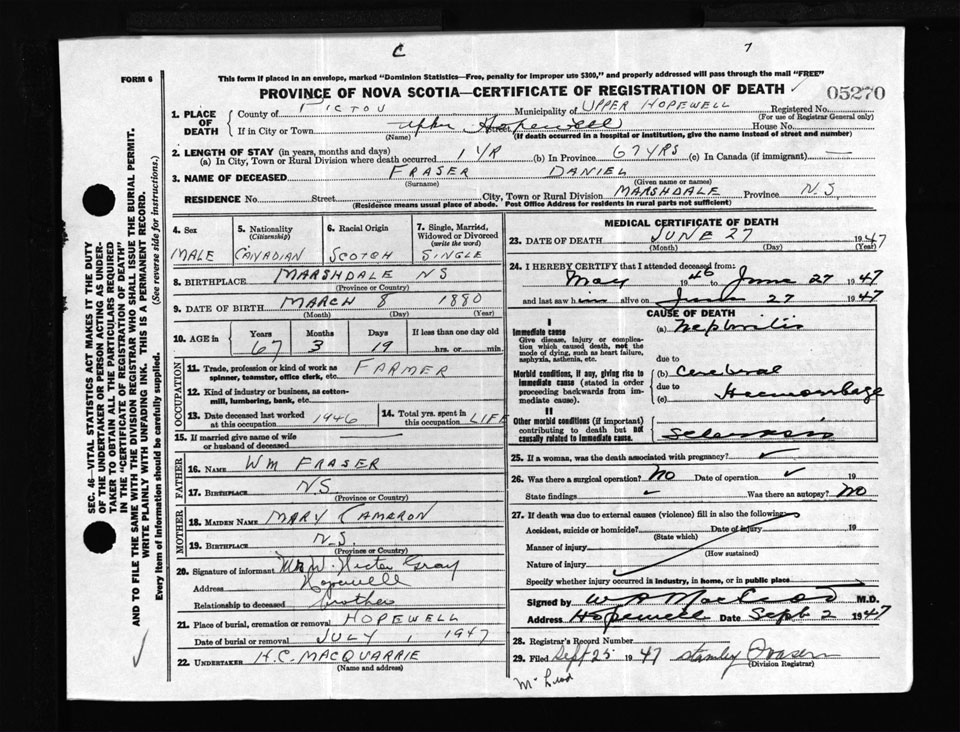 C 7
FORM 6
This form if placed in an envelope, marked "Dominion Statistics—Free, penalty for improper use $300," and properly addressed will pass through the mail "FREE"
PROVINCE OF NOVA SCOTIA—CERTIFICATE OF REGISTRATION OF DEATH
05270
1. PLACE OF DEATH
County of PICTOU Municipality of UPPER HOPEWELL Registered No.
(For use of Registrar General only)
If in City or Town Upper Hopewell Street House No.
(Name) (If death occurred in a hospital or institution, give the name instead of street and number)
2. LENGTH OF STAY (in years, months and days)
(a) In City, Town or Rural Division where death occurred 1 YR (b) In Province 67 YRS (c) In Canada (if immigrant) —
3. NAME OF DECEASED FRASER DANIEL
(Surname) (Given name or names)
RESIDENCE No. Street City, Town or Rural Division MARSHDALE Province N.S.
(Residence means usual place of abode. Post Office Address for residents in rural parts not sufficient)
4. Sex
MALE
5. Nationality (Citizenship)
CANADIAN
6. Racial Origin
SCOTCH
7. Single, Married, Widowed or Divorced (write the word)
SINGLE
8. BIRTHPLACE MARSHDALE NS
(Province or Country)
9. DATE OF BIRTH MARCH 8 1880
(Month) (Day) (Year)
10. AGE in
Years Months Days If less than one day old
67 3 19 hrs. or min.
OCCUPATION
11. Trade, profession or kind of work as spinner, teamster, office clerk, etc. FARMER
12. Kind of industry or business, as cotton-mill, lumbering, bank, etc.
13. Date deceased last worked at this occupation 1946
14. Total yrs. spent in this occupation LIFE
15. If married give name of wife or husband of deceased
FATHER
16. NAME WM FRASER
17. BIRTHPLACE N.S.
(Province or Country)
MOTHER
18. MAIDEN NAME MARY CAMERON
19. BIRTHPLACE N.S.
(Province or Country)
20. Signature of informant Hector Gray
Address Hopewell
Relationship to deceased brother
21. Place of burial, cremation or removal HOPEWELL
Date of burial or removal JULY 1 1947
22. UNDERTAKER H.C. MACQUARRIE
(Name and address)
MEDICAL CERTIFICATE OF DEATH
23. DATE OF DEATH JUNE 27 1947
(Month) (Day) (Year)
24. I HEREBY CERTIFY that I attended deceased from:
May 1946 to June 27 1947
and last saw him alive on June 27 1947
CAUSE OF DEATH
I
Immediate cause
Give disease, injury or complication which caused death, not the mode of dying, such as heart failure, asphyxia, asthenia, etc.
(a) Nephritis
due to
Morbid conditions, if any, giving rise to immediate cause (stated in order proceeding backwards from immediate cause).
(b) Cerebral
due to
(c) Haemorrhage
II
Other morbid conditions (if important) contributing to death but not causally related to immediate cause.
Sclerosis
25. If a woman, was the death associated with pregnancy?
26. Was there a surgical operation? No Date of operation 19
State findings Was there an autopsy? No
27. If death was due to external causes (violence) fill in also the following:
Accident, suicide or homicide? Date of injury 19
(State which)
Manner of injury
(How sustained)
Nature of injury
Specify whether injury occurred in industry, in home, or in public place
Signed by MacLeod M.D.
Address Hopewell Date Sept 2 1947
28. Registrar's Record Number
29. Filed Sept 25 1947 Stanley Fraser
(Division Registrar)
McLeod
SEC. 46—VITAL STATISTICS ACT MAKES IT THE DUTY
OF THE UNDERTAKER OR PERSON ACTING AS UNDER-
TAKER TO OBTAIN ALL THE PARTICULARS REQUIRED
IN THE "CERTIFICATE OF REGISTRATION OF DEATH"
AND TO FILE THE SAME WITH THE DIVISION REGISTRAR WHO SHALL ISSUE THE BURIAL PERMIT.
WRITE PLAINLY WITH UNFADING INK. THIS IS A PERMANENT RECORD.
Every item of information should be carefully supplied. (See reverse side for instructions.)